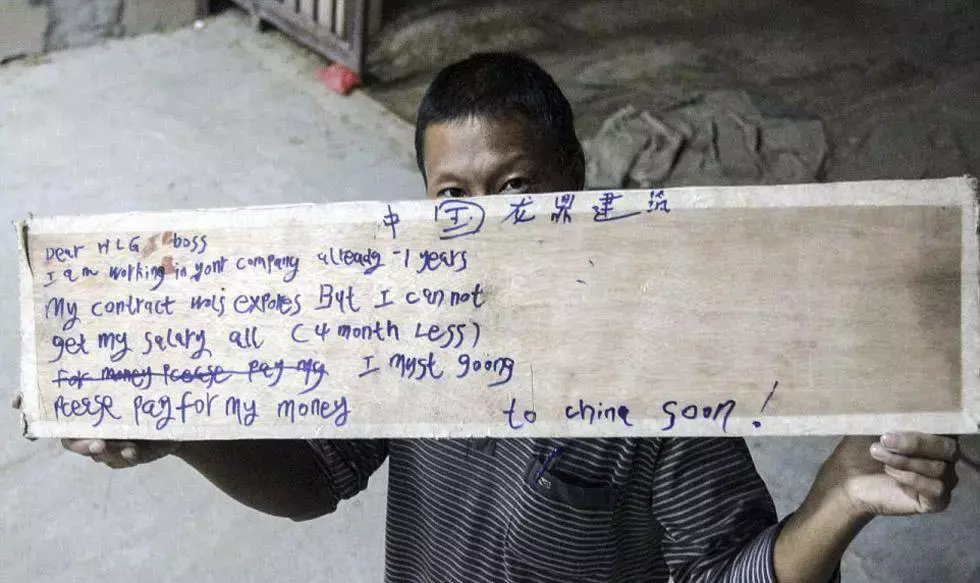 中国龙鼎建筑
Dear HLG boss
I am working in yont company allready -1 years
My contract wolj expores But I can not
get my salary all (4 month Less)
For money Pcease pay my I myst goong
Pcease pay for my money to china soon!